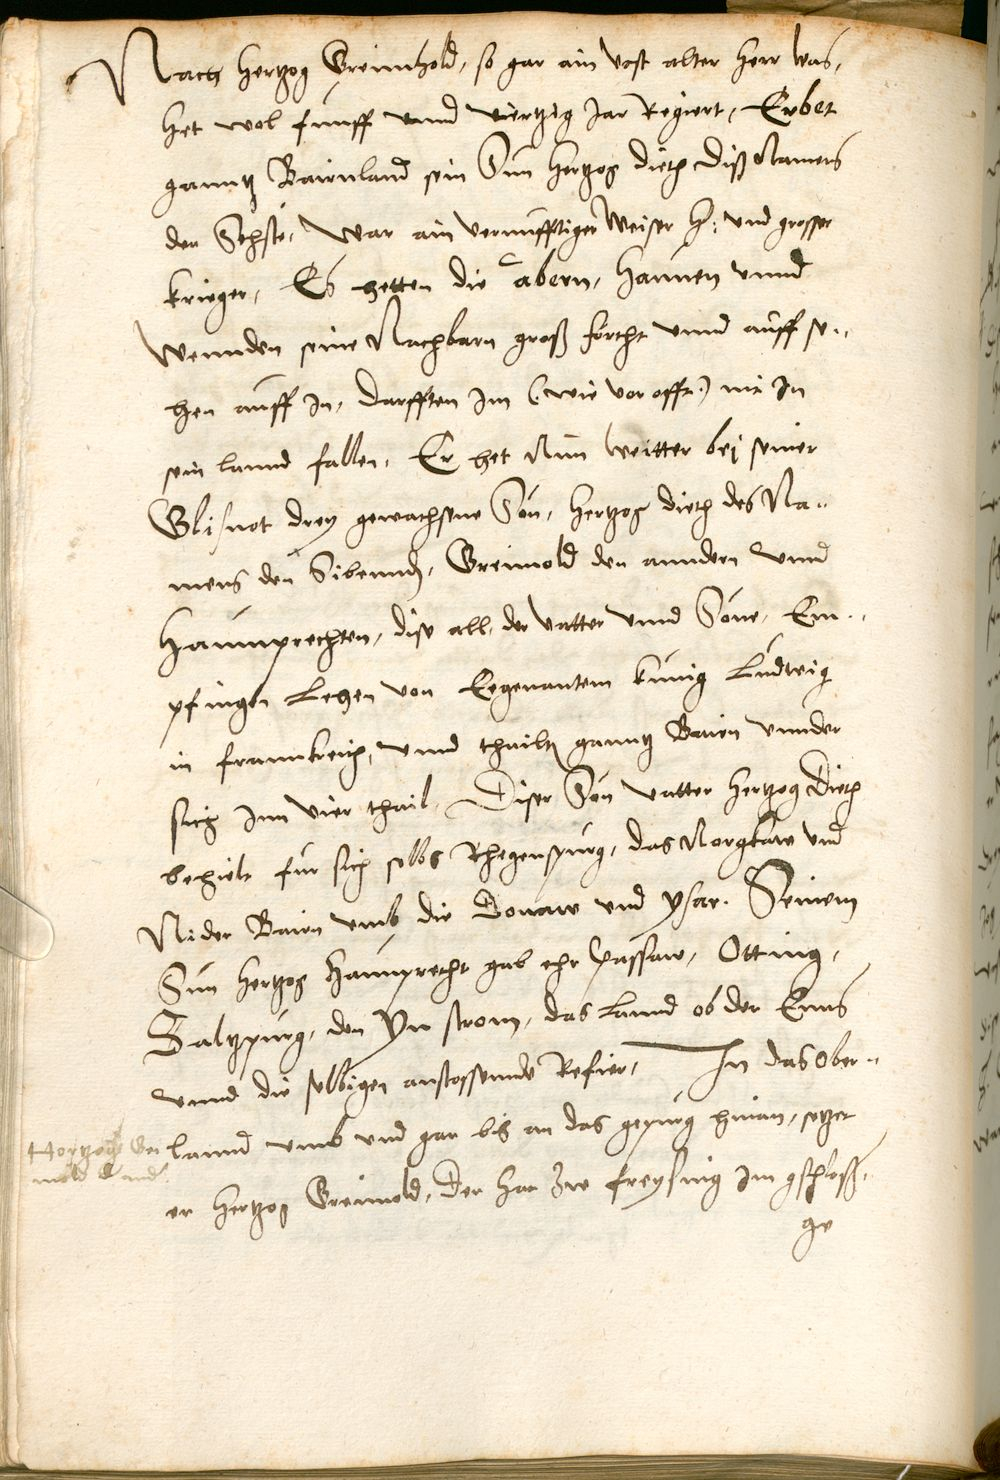 Nach Hertzog Greimhold, so gar ain vast alter Herr was,
het wol funff unnd viertzig Jar Regiert, Erbet
ganntz Bairnland sein Sun Hertzog dieth diß Namens
der Sechste, War ain vernunfftiger Weiser H: und grosser
krieger, Es hetten die abern, Haunen unnd
Wennden seine Nachbarn groß forcht unnd auff se-
hen auff in, darfften im (wie vor offt) nit in
sein lannd fallen. Er het Nun weitter bej seiner
Glisnot drey gewachsene Sön, Hertzog dieth des Na-
mens den Sibennd, Greimold den anndern unnd
Haunprechten, dise all, der vatter unnd Söne, Em-
pfingen Lehen von Eegenantem künig Ludwig
in frannkreich, unnd thailt ganntz Bairn unnder
sich inn vier thail. Diser Sön vatter Hertzog Dieth
behielt für sich selbs Rhegenspurg, das Norgkaw und
Nider Bairn umb die Donaw und Ysar. Seinem
Sun Hertzog Haunprecht gab ehr Passaw, Otting,
Saltzpurg, den Yn strom, das Lannd ob der Enns
unnd die selbigen anstossennde Refier, In das Ober-
lannd umb und gar bis an das gepürg hinan, setzet
er Hertzog Greimold, Der hat Zw freysing im gschloß
ge
Hertzog Grei
mold Land